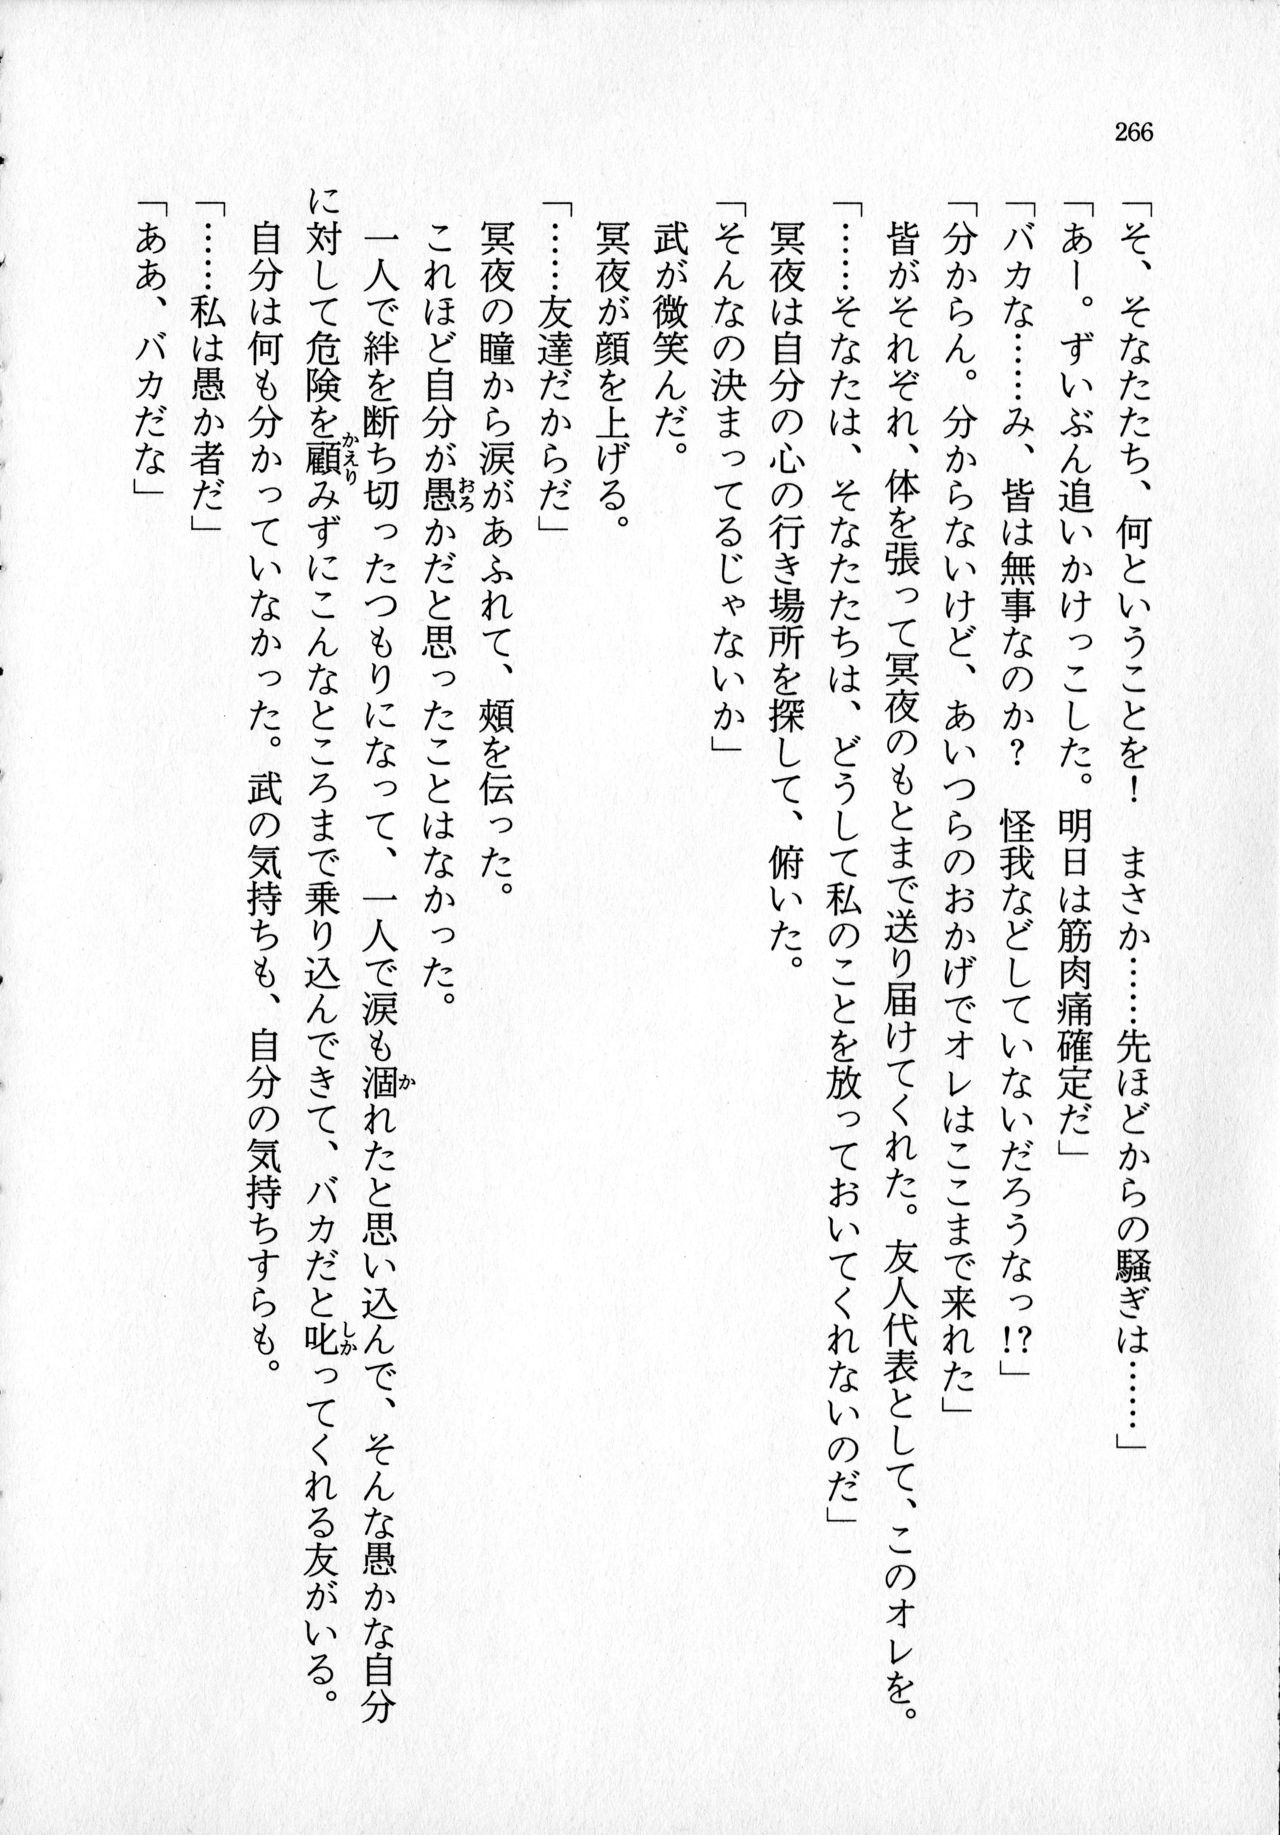 266
「そ、そなたたち、何ということを！　まさか……先ほどからの騒ぎは……」
「あー。ずいぶん追いかけっこした。明日は筋肉痛確定だ」
「バカな……み、皆は無事なのか？　怪我などしていないだろうなっ!?」
「分からん。分からないけど、あいつらのおかげでオレはここまで来れた」
皆がそれぞれ、体を張って冥夜のもとまで送り届けてくれた。友人代表として、このオレを。
「……そなたは、そなたたちは、どうして私のことを放っておいてくれないのだ」
冥夜は自分の心の行き場所を探して、俯いた。
「そんなの決まってるじゃないか」
武が微笑んだ。
冥夜が顔を上げる。
「……友達だからだ」
冥夜の瞳から涙があふれて、頬を伝った。
これほど自分が愚おろかだと思ったことはなかった。
一人で絆を断ち切ったつもりになって、一人で涙も涸かれたと思い込んで、そんな愚かな自分
に対して危険を顧かえりみずにこんなところまで乗り込んできて、バカだと叱しかってくれる友がいる。
自分は何も分かっていなかった。武の気持ちも、自分の気持ちすらも。
「……私は愚か者だ」
「ああ、バカだな」